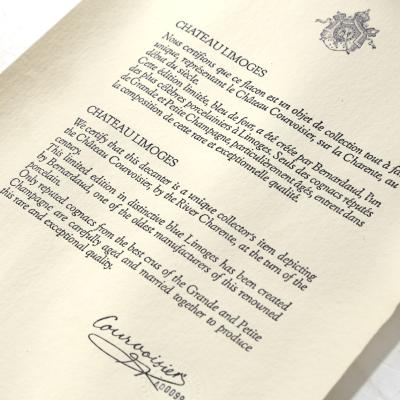 CHATEAU LIMOGES
Nous certifions que ce flacon est un objet de collection tout à fait
unique, représentant le Château Courvoisier sur la Charente, au
début du siècle.
Cette édition limitée, bleu de four, a été créée par Bernardaud, l'un
des plus célèbres porcelainiers à Limoges. Seuls des cognacs réputés
de Grande et Petite Champagne, particulièrement âgés, entrent dans
la composition de cette rare et exceptionnelle qualité.
CHATEAU LIMOGES
We certify that this decanter is a unique collector's item depicting
the Château Courvoisier, by the River Charente, at the turn of the
century.
This limited edition in distinctive blue Limoges has been created
by Bernardaud, one of the oldest manufacturers of this renowned
porcelain.
Only reputed cognacs from the best crus of the Grande and Petite
Champagne, are carefully aged and married together to produce
this rare and exceptional quality.
Courvoisier